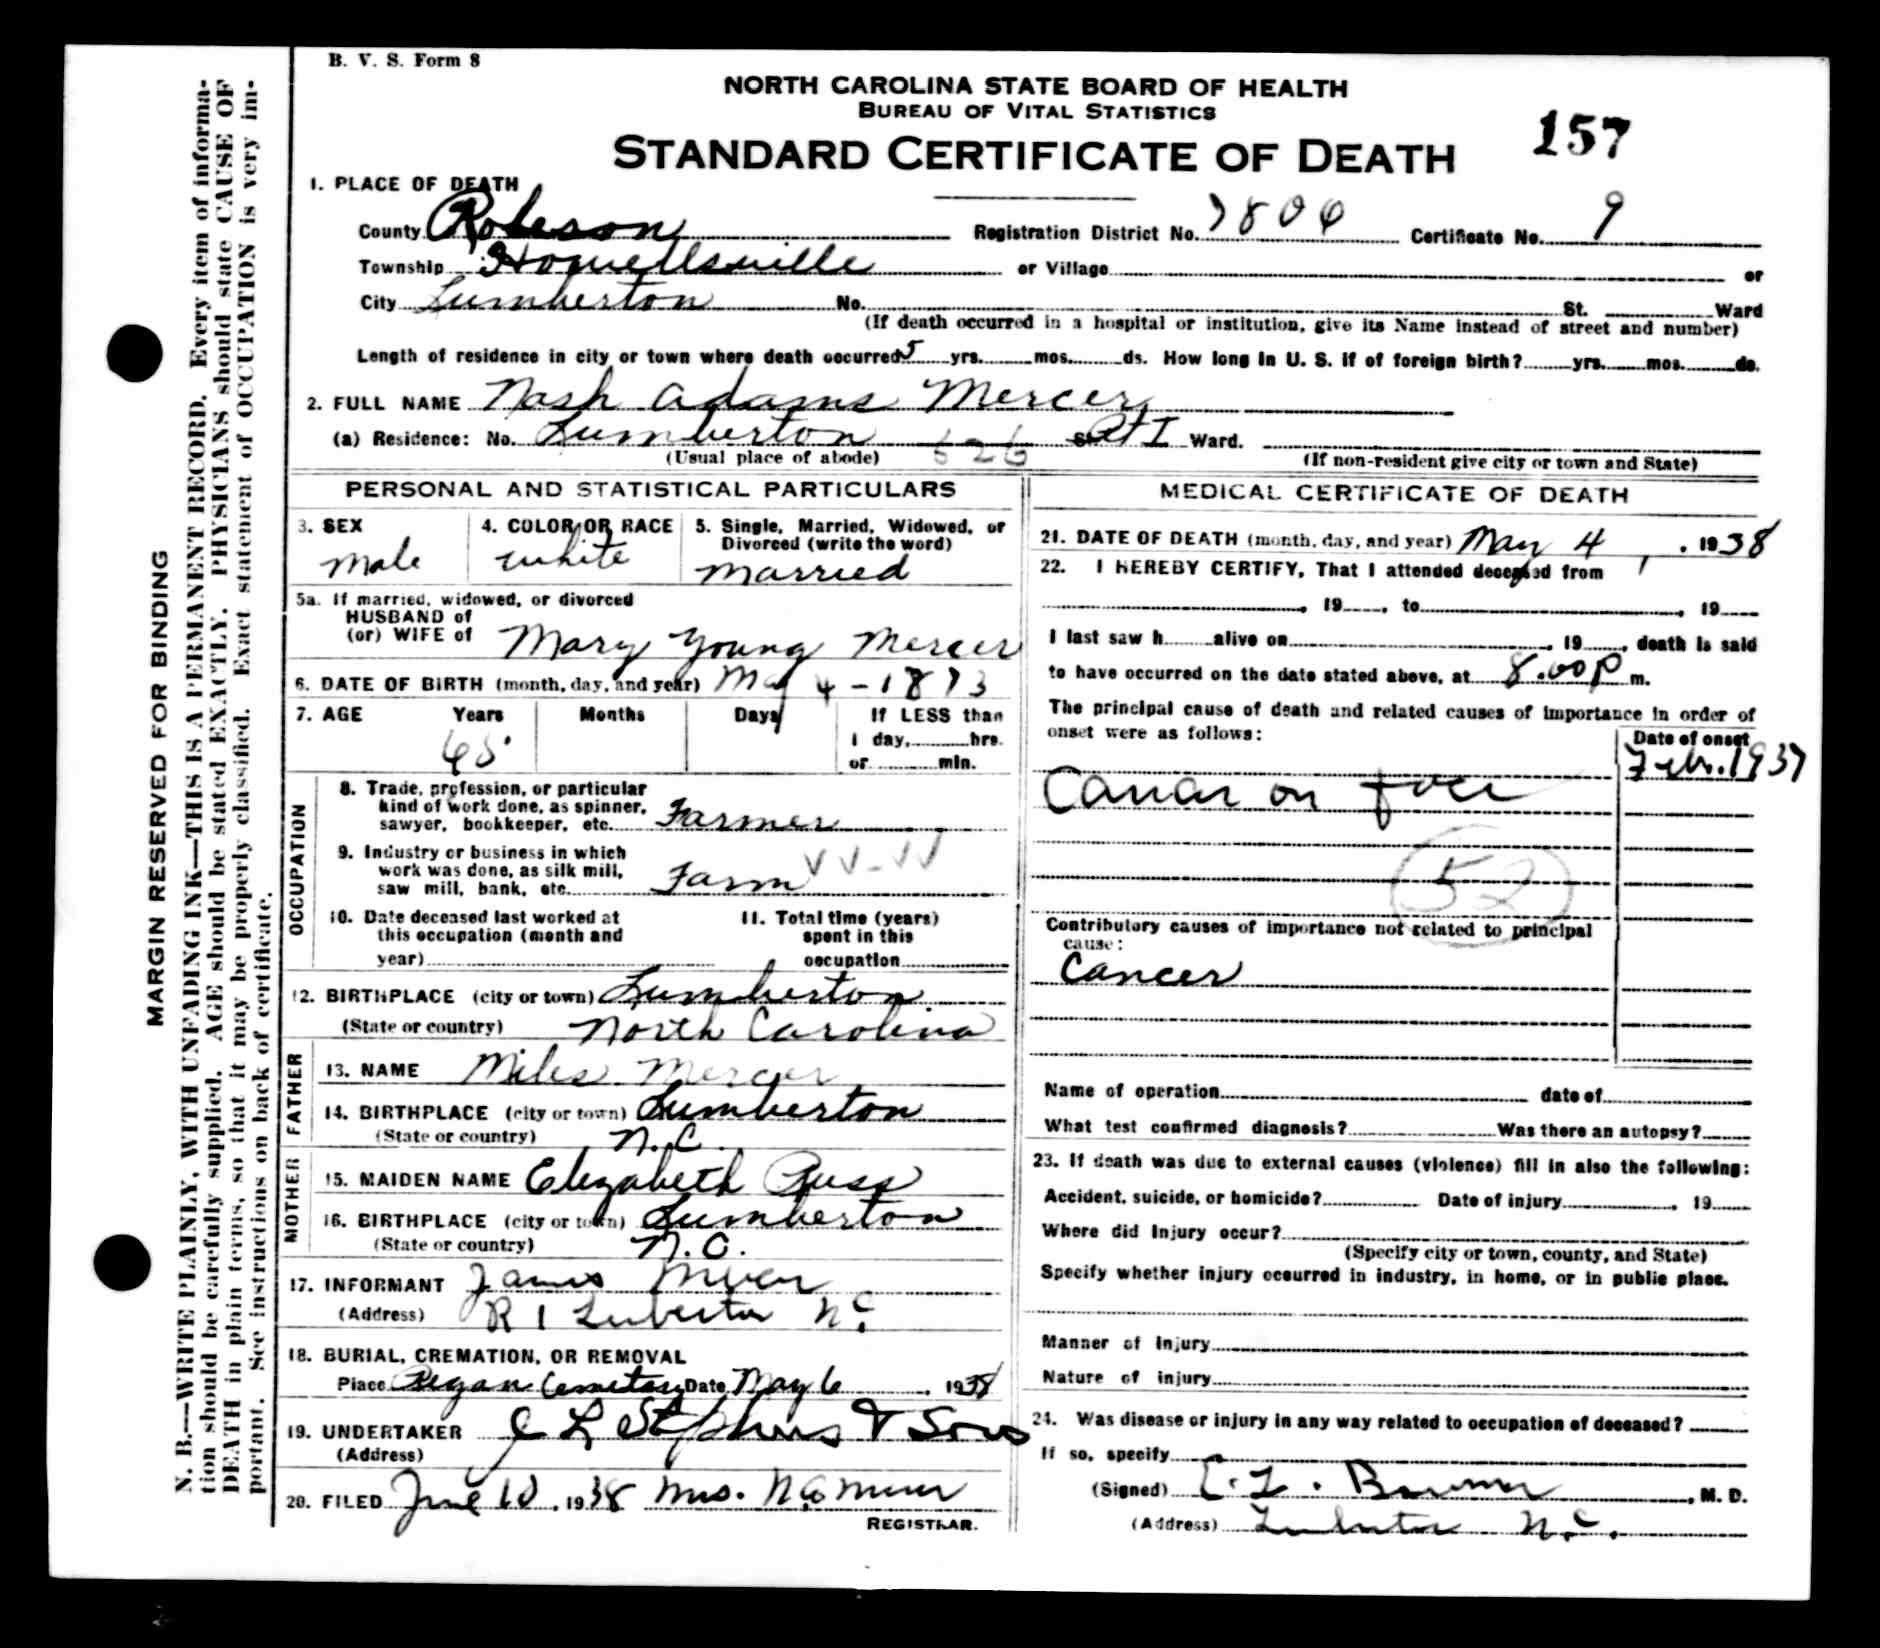 B. V. S. Form 8
NORTH CAROLINA STATE BOARD OF HEALTH
BUREAU OF VITAL STATISTICS
STANDARD CERTIFICATE OF DEATH
157
MARGIN RESERVED FOR BINDING
N. B.—WRITE PLAINLY, WITH UNFADING INK—THIS IS A PERMANENT RECORD. Every item of informa-
tion should be carefully supplied. AGE should be stated EXACTLY. PHYSICIANS should state CAUSE OF
DEATH in plain terms, so that it may be properly classified. Exact statement of OCCUPATION is very im-
portant. See instructions on back of certificate.
1. PLACE OF DEATH
County Robeson Registration District No. 7806 Certificate No. 9
Township Howellsville or Village or
City Lumberton No. St. Ward
(If death occurred in a hospital or institution, give its Name instead of street and number)
Length of residence in city or town where death occurred 5 yrs. mos. ds. How long in U. S. if of foreign birth? yrs. mos. ds.
2. FULL NAME Nash Adams Mercer
(a) Residence: No. Lumberton St. Rt 1 Ward.
(Usual place of abode) 626 (If non-resident give city or town and State)
PERSONAL AND STATISTICAL PARTICULARS
3. SEX
Male
4. COLOR OR RACE
White
5. Single, Married, Widowed, or
Divorced (write the word)
Married
5a. If married, widowed, or divorced
HUSBAND of
(or) WIFE of Mary Young Mercer
6. DATE OF BIRTH (month, day, and year) May 4 - 1873
7. AGE Years Months Days If LESS than
1 day, hrs.
or min.
65
OCCUPATION
8. Trade, profession, or particular
kind of work done, as spinner,
sawyer, bookkeeper, etc. Farmer
9. Industry or business in which
work was done, as silk mill,
saw mill, bank, etc. Farm VV-VV
10. Date deceased last worked at
this occupation (month and
year)
11. Total time (years)
spent in this
occupation
12. BIRTHPLACE (city or town) Lumberton
(State or country) North Carolina
FATHER
13. NAME Miles Mercer
14. BIRTHPLACE (city or town) Lumberton
(State or country) N.C.
MOTHER
15. MAIDEN NAME Elizabeth Russ
16. BIRTHPLACE (city or town) Lumberton
(State or country) N.C.
17. INFORMANT James
(Address) R 1 Lumberton N.C.
18. BURIAL, CREMATION, OR REMOVAL
Place Regan Cemetary Date May 6, 1938
19. UNDERTAKER Stephens & Sons
(Address)
20. FILED June 10, 1938 Mrs.
REGISTRAR.
MEDICAL CERTIFICATE OF DEATH
21. DATE OF DEATH (month, day, and year) May 4, 1938
22. I HEREBY CERTIFY, That I attended deceased from
, 19 , to , 19
I last saw h alive on , 19 , death is said
to have occurred on the date stated above, at 8.00 P m.
The principal cause of death and related causes of importance in order of
onset were as follows:
Date of onset
Feb. 1937
Cancer on face
52
Contributory causes of importance not related to principal
cause:
Cancer
Name of operation date of
What test confirmed diagnosis? Was there an autopsy?
23. If death was due to external causes (violence) fill in also the following:
Accident, suicide, or homicide? Date of injury , 19
Where did injury occur?
(Specify city or town, county, and State)
Specify whether injury occurred in industry, in home, or in public place.
Manner of injury
Nature of injury
24. Was disease or injury in any way related to occupation of deceased?
If so, specify
(Signed) , M. D.
(Address) Lumberton N.C.